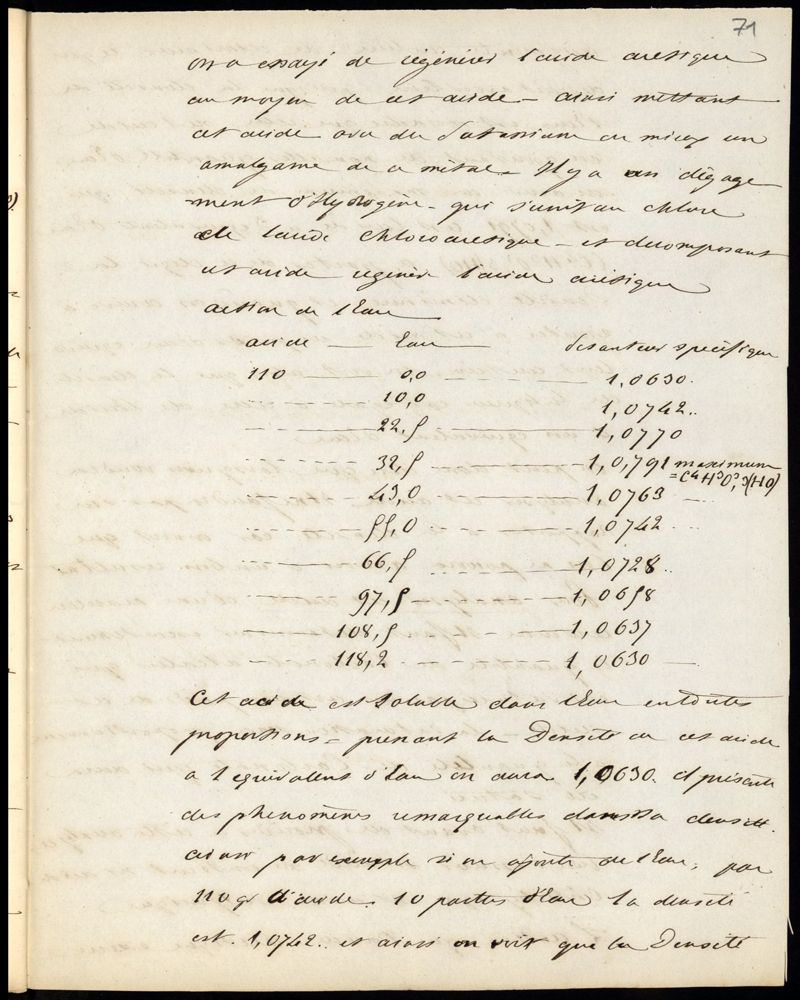 71
on a essayé de régénérer l'acide acetique
au moyen de cet acide - ainsi mettant
cet acide avec du Potassium ou mieux un
amalgame de ce métal - Il y a un dégage
ment d'Hydrogène - qui s'unit au chlore
de l'acide Chloroacetique - et decomposant
cet acide regénère l'acide acétique
action de l'Eau
acide — Eau — Pesanteur specifique
110 — 0,0 — 1,0630.
10,0 1,0742..
22,5 — 1,0770
32,5 — 1,0,791 maximum
= C4H3O3,3(HO)
43,0 — 1,0763
55,0 — 1,0742
66,5 — 1,0728..
97,5 — 1,0658
108,5 — 1,0637
118,2 — 1,0630
Cet acide est soluble dans l'Eau en toutes
proportions - prenant la Densité de cet acide
a 1 equivalent d'Eau on aura 1,0630. il présente
des phenomènes remarquables dans sa densité.
ainsi par exemple si on ajoute de l'Eau, pour
110 gr d'acide. 10 parties d'Eau la densité
est. 1,0742.. et ainsi on voit que la Densité